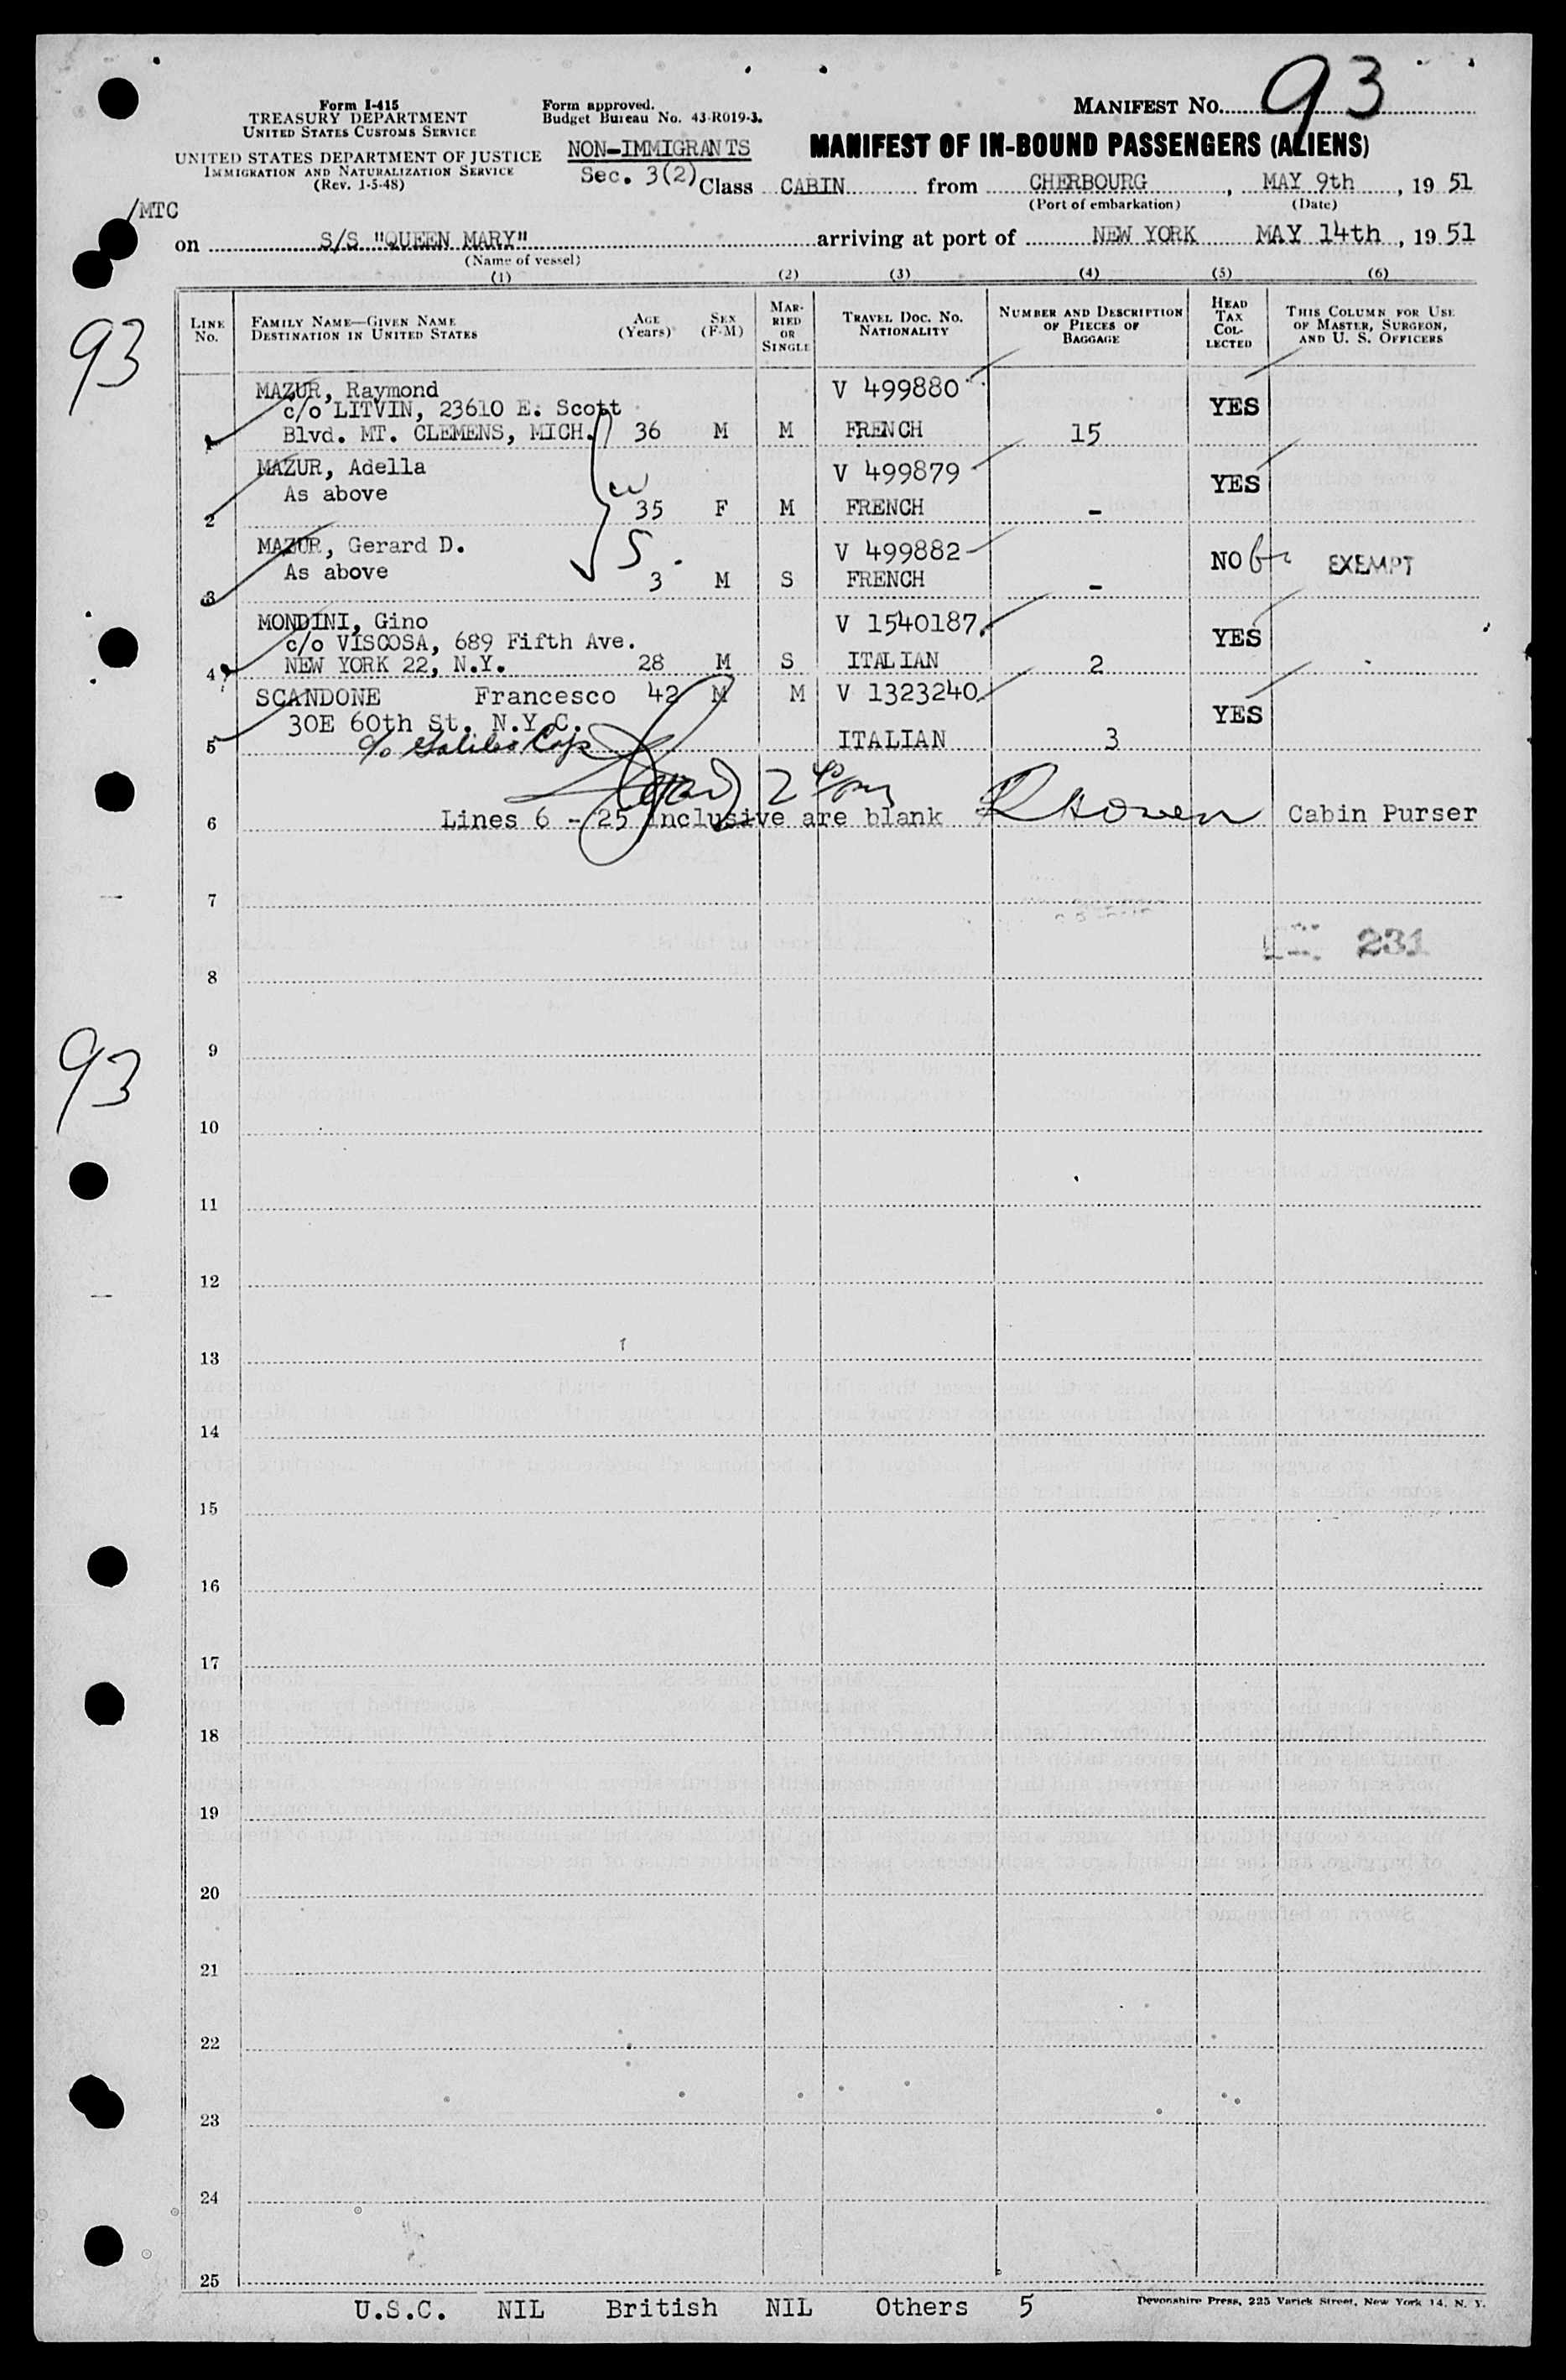 MANIFEST NO. 93
Form I-415
TREASURY DEPARTMENT
UNITED STATES CUSTOMS SERVICE
UNITED STATES DEPARTMENT OF JUSTICE
IMMIGRATION AND NATURALIZATION SERVICE
(Rev. 1-5-48)
Form approved.
Budget Bureau No. 43-R019-3.
NON-IMMIGRANTS
Sec. 3(2)
MANIFEST OF IN-BOUND PASSENGERS (ALIENS)
Class CABIN from CHERBOURG, MAY 9th, 19 51
(Port of embarkation) (Date)
/MTC
on S/S "QUEEN MARY" arriving at port of NEW YORK MAY 14th, 19 51
(Name of vessel)
(1) (2) (3) (4) (5) (6)
LINE No. FAMILY NAME—GIVEN NAME DESTINATION IN UNITED STATES AGE (Years) SEX (F-M) MARRIED OR SINGLE TRAVEL DOC. NO. NATIONALITY NUMBER AND DESCRIPTION OF PIECES OF BAGGAGE HEAD TAX COLLECTED THIS COLUMN FOR USE OF MASTER, SURGEON, AND U. S. OFFICERS
93
MAZUR, Raymond V 499880
c/o LITVIN, 23610 E. Scott YES
1 Blvd. MT. CLEMENS, MICH. 36 M M FRENCH 15
MAZUR, Adella V 499879
As above YES
W
2 35 F M FRENCH -
MAZUR, Gerard D. S. V 499882
As above NO EXEMPT
3 3 M S FRENCH -
MONDINI, Gino V 1540187.
c/o VISCOSA, 689 Fifth Ave. YES
4 NEW YORK 22, N.Y. 28 M S ITALIAN 2
SCANDONE Francesco 42 M M V 1323240
30E 60th St. N.Y.C. YES
5 c/o Galileo Corp ITALIAN 3
2 40 pm
6 Lines 6 - 25 inclusive are blank Cabin Purser
7
231
8
9
93
10
11
12
13
14
15
16
17
18
19
20
21
22
23
24
25
U.S.C. NIL British NIL Others 5
Devonshire Press, 225 Varick Street, New York 14, N. Y.